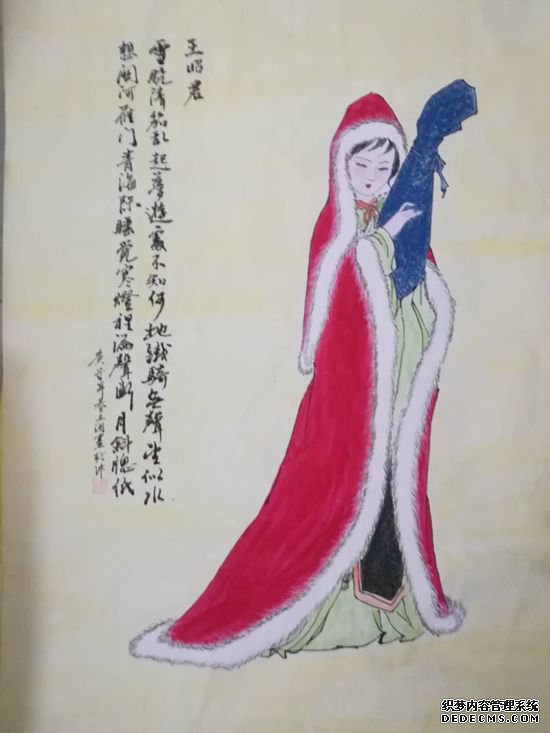 王昭君
雪晓清笳乱起夢遊處不知何地鐵騎无聲望似水
想関河雁门青海际睡觉寒燈裡漏聲断月斜牕纸
庚子年春
织梦内容管理系统
DEDECMS.COM